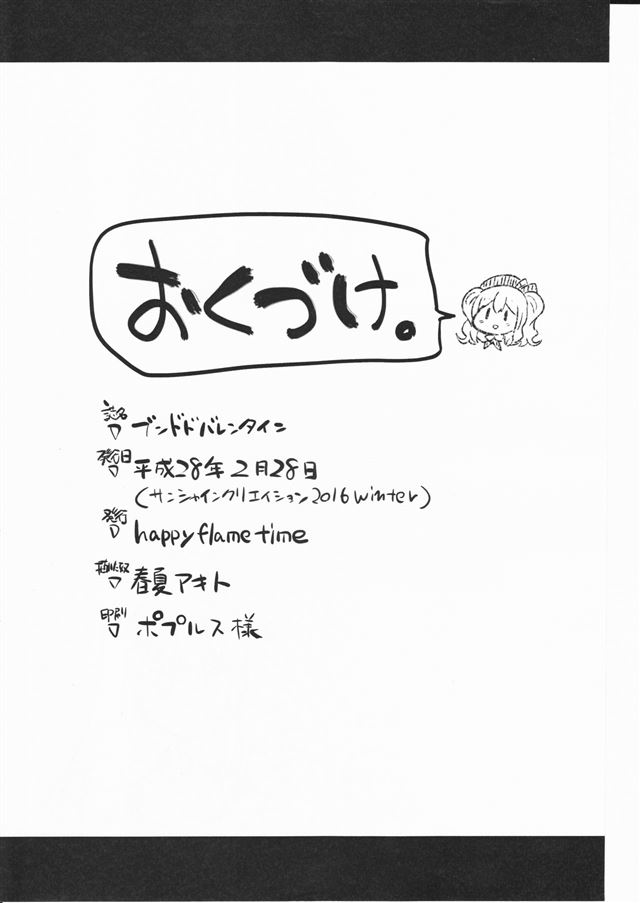 おくづけ。
誌名
ブンドドバレンタイン
発行日
平成28年2月28日
(サンシャインクリエイション2016winter)
発行
happyflametime
春夏アキト
印刷
ポプルス様